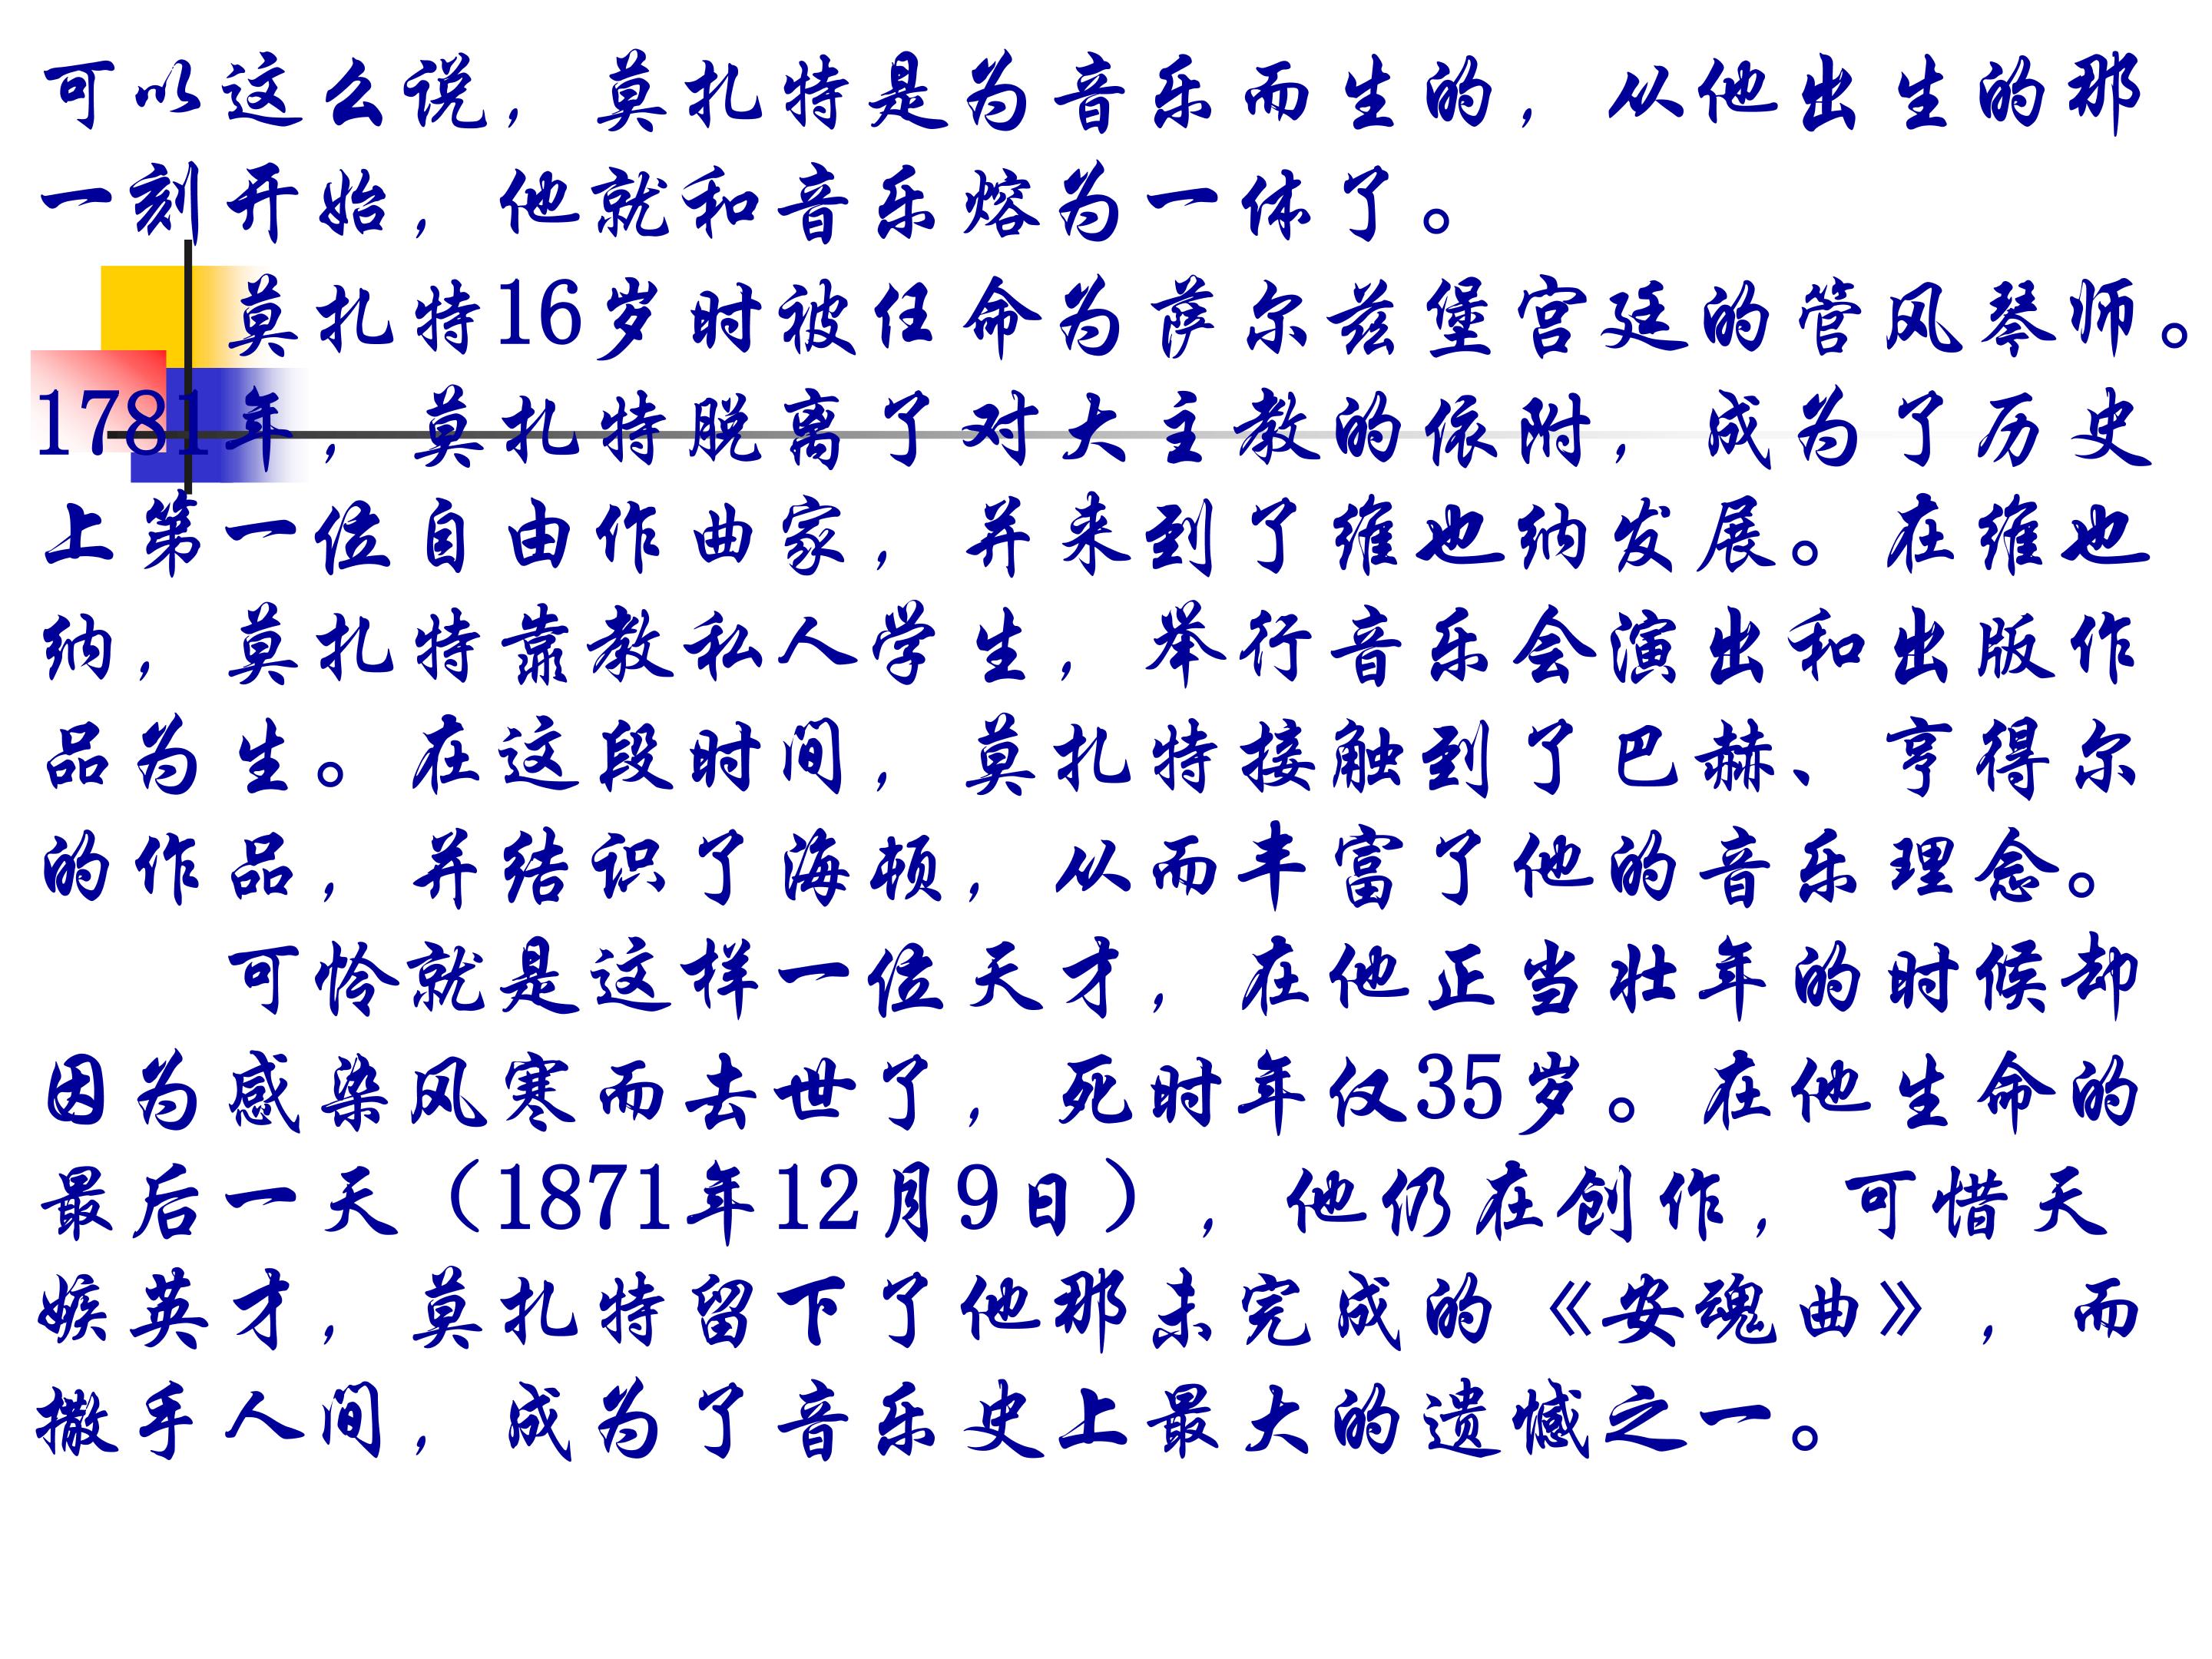 可以这么说，莫扎特是为音乐而生的，从他出生的那
一刻开始，他就和音乐熔为一体了。
莫扎特16岁时被任命为萨尔兹堡宫廷的管风琴师。
1781年，莫扎特脱离了对大主教的依附，成为了历史
上第一位自由作曲家，并来到了维也纳发展。在维也
纳，莫扎特靠教私人学生，举行音乐会演出和出版作
品为生。在这段时间，莫扎特接触到了巴赫、亨得尔
的作品，并结识了海顿，从而丰富了他的音乐理念。
可怜就是这样一位天才，在他正当壮年的时候却
因为感染风寒而去世了，死时年仅35岁。在他生命的
最后一天（1871年12月9日），他仍在创作，可惜天
嫉英才，莫扎特留下了他那未完成的《安魂曲》，而
撒手人间，成为了音乐史上最大的遗憾之一。